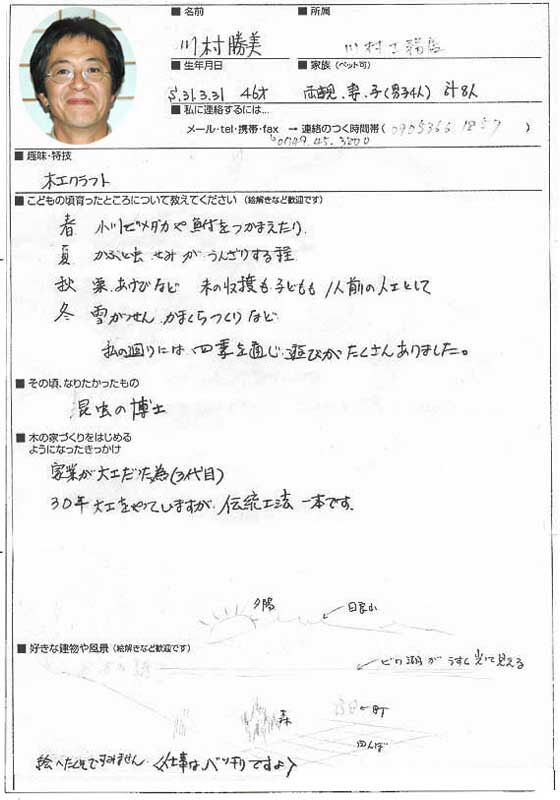 ■ 名前
■ 所属
川村勝美
川村工務店
■ 生年月日
■ 家族 (ペット可)
S.31.3.31 46才
両親、妻、子(男子4人) 計8人
■ 私に連絡するには…
メール・tel・携帯・fax → 連絡のつく時間帯( )
0749.45.3200
■ 趣味・特技
木工クラフト
■ こどもの頃育ったところについて教えてください (絵解きなど歓迎です)
春 小川でメダカや魚をつかまえたり
夏 かぶと虫 せみが うんざりする程
秋 栗、あけびなど 木の収穫も子どもも 1人前の人工として
冬 雪がっせん かまくらつくりなど
私の廻りには 四季を通じ 遊びがたくさんありました。
■ その頃、なりたかったもの
昆虫の博士
■ 木の家づくりをはじめる
ようになったきっかけ
家業が大工だった為(3代目)
30年大工をやっていますが、伝統工法一本です。
夕陽
■ 好きな建物や風景 (絵解きなど歓迎です)
ビワ湖がうすく光って見える
森
町
田んぼ
絵へたくそですみません。 〈仕事はバッチリですよ〉